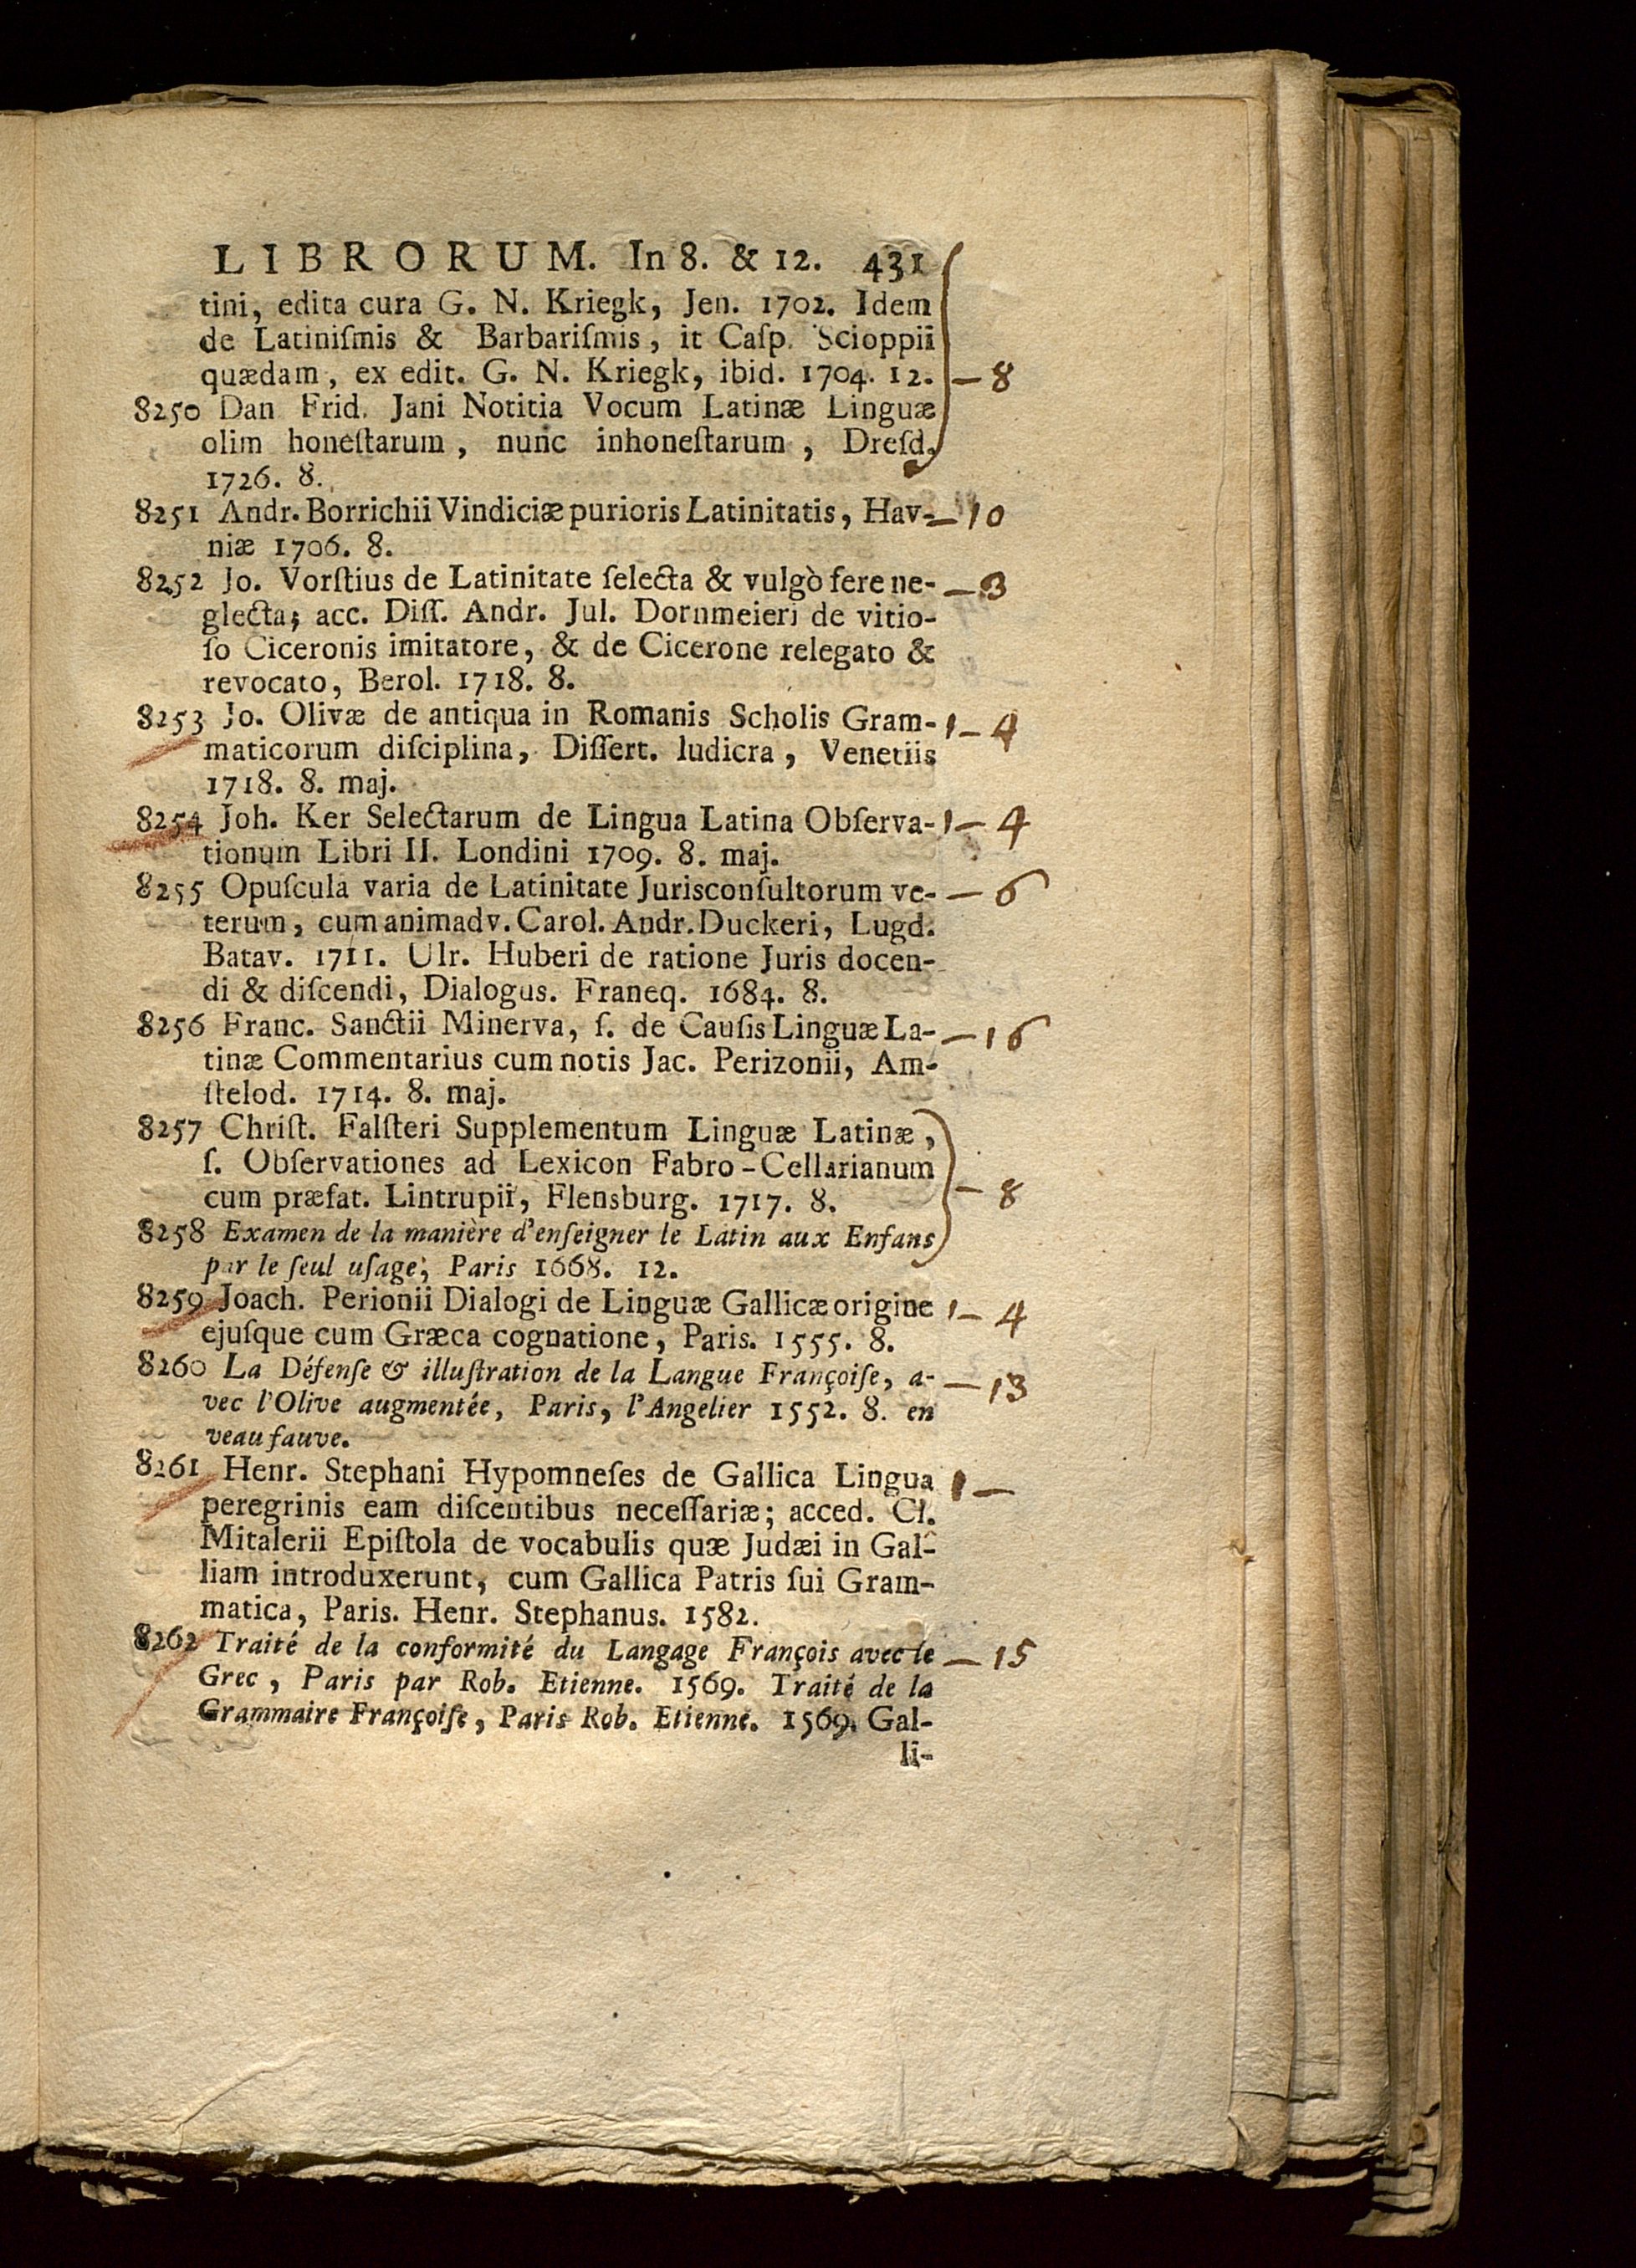 LIBRORUM. In 8. & 12. 431
tini, edita cura G. N. Kriegk, Jen. 1702. Idem
de Latiniſmis & Barbariſmis, it Caſp. Scioppii
quædam, ex edit. G. N. Kriegk, ibid. 1704. 12. — 8
8250 Dan Frid. Jani Notitia Vocum Latinæ Linguæ
olim honeſtarum, nunc inhoneſtarum, Dreſd.
1726. 8.
8251 Andr. Borrichii Vindiciæ purioris Latinitatis, Hav- — 10
niæ 1706. 8.
8252 Jo. Vorſtius de Latinitate ſelecta & vulgò fere ne- — 3
glecta; acc. Diſſ. Andr. Jul. Dornmeieri de vitio-
ſo Ciceronis imitatore, & de Cicerone relegato &
revocato, Berol. 1718. 8.
8253 Jo. Olivæ de antiqua in Romanis Scholis Gram- 1 — 4
maticorum diſciplina, Diſſert. ludicra, Venetiis
1718. 8. maj.
8254 Joh. Ker Selectarum de Lingua Latina Obſerva- 1 — 4
tionum Libri II. Londini 1709. 8. maj.
8255 Opuſcula varia de Latinitate Jurisconſultorum ve- — 6
terum, cum animadv. Carol. Andr. Duckeri, Lugd.
Batav. 1711. Ulr. Huberi de ratione Juris docen-
di & diſcendi, Dialogus. Franeq. 1684. 8.
8256 Franc. Sanctii Minerva, ſ. de Cauſis Linguæ La- — 16
tinæ Commentarius cum notis Jac. Perizonii, Am-
ſtelod. 1714. 8. maj.
8257 Chriſt. Falſteri Supplementum Linguæ Latinæ,
ſ. Obſervationes ad Lexicon Fabro-Cellarianum
cum præfat. Lintrupii, Flensburg. 1717. 8. — 8
8258 Examen de la manière d'enſeigner le Latin aux Enfans
par le ſeul uſage, Paris 1668. 12.
8259 Joach. Perionii Dialogi de Linguæ Gallicæ origine 1 — 4
ejuſque cum Græca cognatione, Paris. 1555. 8.
8260 La Défenſe & illuſtration de la Langue Françoiſe, a- — 13
vec l'Olive augmentée, Paris, l'Angelier 1552. 8. en
veau fauve.
8261 Henr. Stephani Hypomneſes de Gallica Lingua 1 —
peregrinis eam diſcentibus neceſſariæ; acced. Cl.
Mitalerii Epiſtola de vocabulis quæ Judæi in Gal-
liam introduxerunt, cum Gallica Patris ſui Gram-
matica, Paris. Henr. Stephanus. 1582.
8262 Traité de la conformité du Langage François avec le — 15
Grec, Paris par Rob. Etienne. 1569. Traité de la
Grammaire Françoiſe, Paris Rob. Etienne. 1569. Gal-
li-